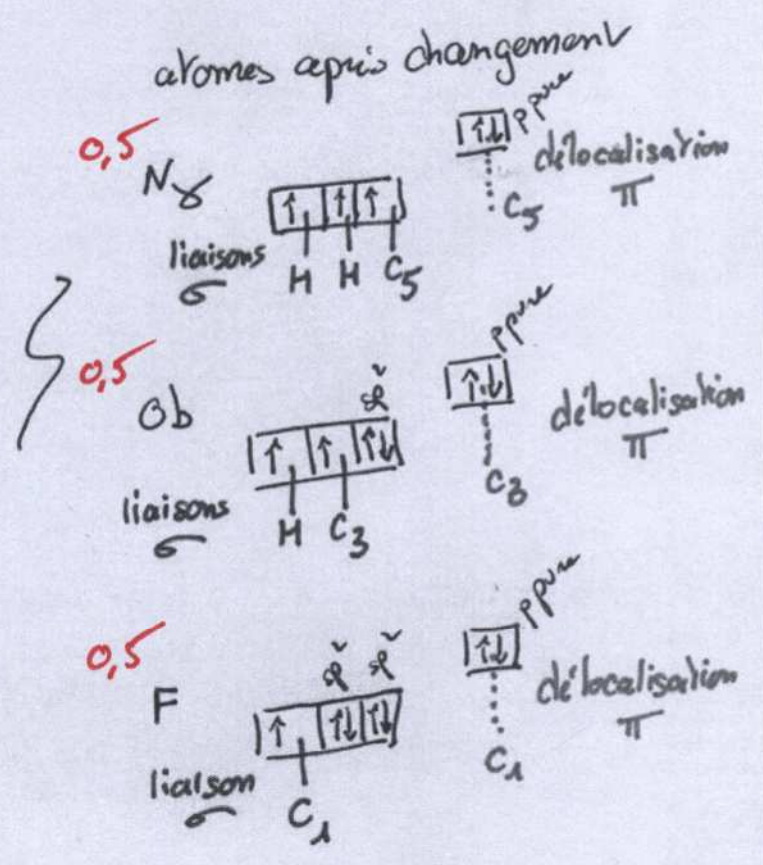 atomes après changement
0,5
Nγ
↑ ↑ ↑
liaisons σ
H H C5
↑↓ p pure
délocalisation π
C5
0,5
Ob
↑ ↑ ↑↓
liaisons σ
H C3
↑↓ p pure
délocalisation π
C3
0,5
F
↑ ↑↓ ↑↓
liaison σ
C1
↑↓ p pure
délocalisation π
C1